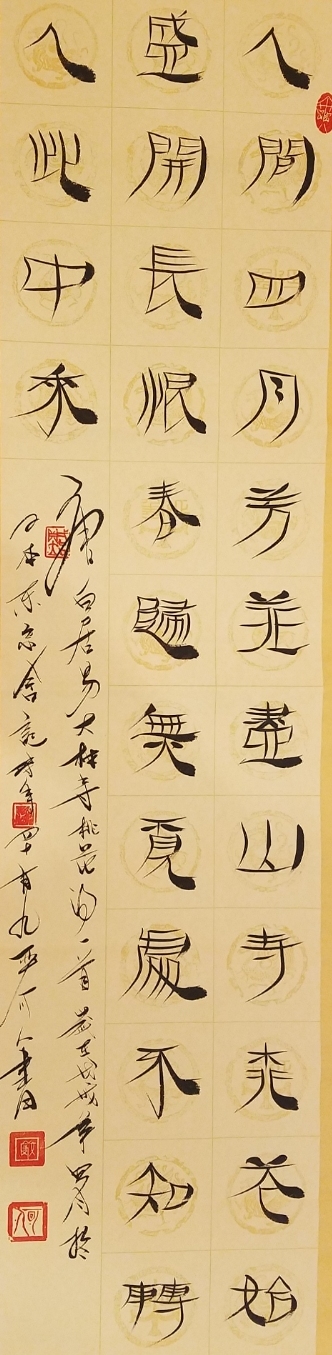 人間四月芳菲盡山寺桃花始
盛開長恨春歸無覓處不知轉
入此中來
唐白居易大林寺桃花詩一首歲在戊戌年四月於
日本東京舍 時年四十有九 書